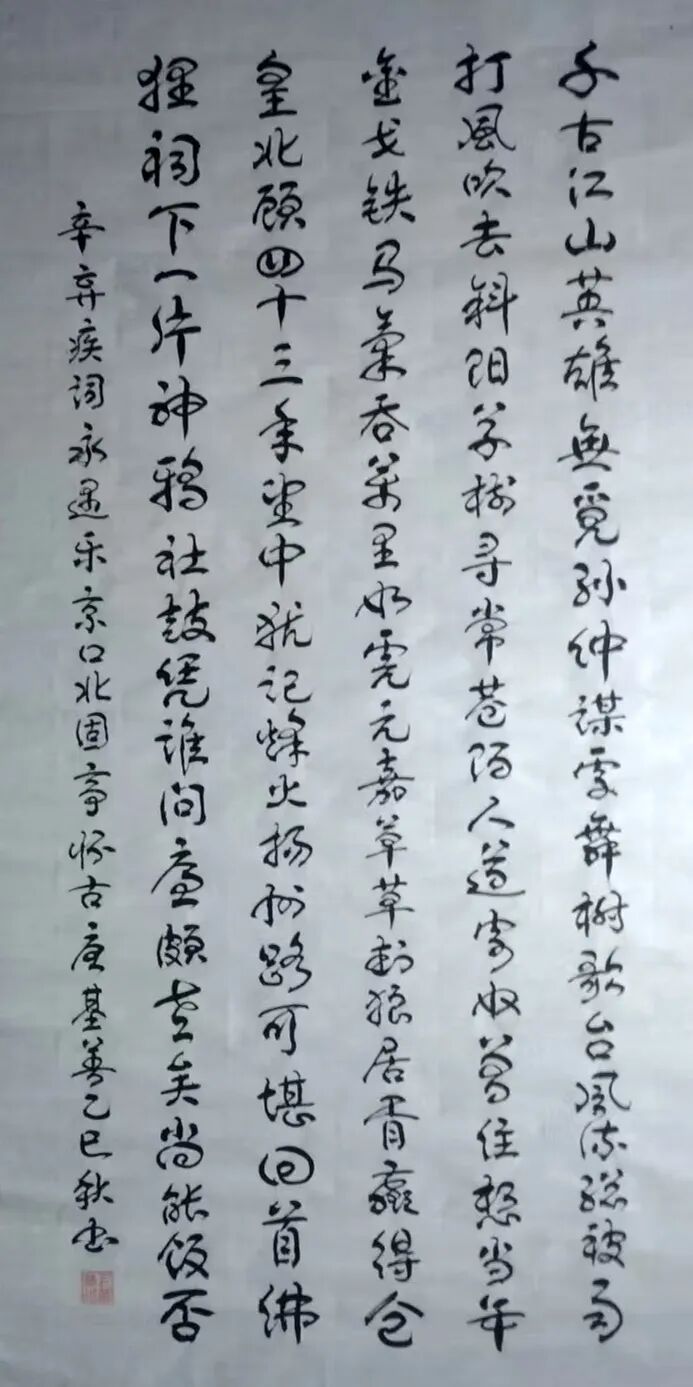 千古江山英雄無覓孫仲謀處舞榭歌台風流總被雨
打風吹去斜陽草樹寻常巷陌人道寄奴曾住想当年
金戈铁马氣吞萬里如虎元嘉草草封狼居胥贏得仓
皇北顧四十三年望中犹记烽火扬州路可堪回首佛
狸祠下一片神鴉社鼓凭誰问廉頗老矣尚能饭否
辛弃疾词永遇乐京口北固亭怀古基善乙巳秋书